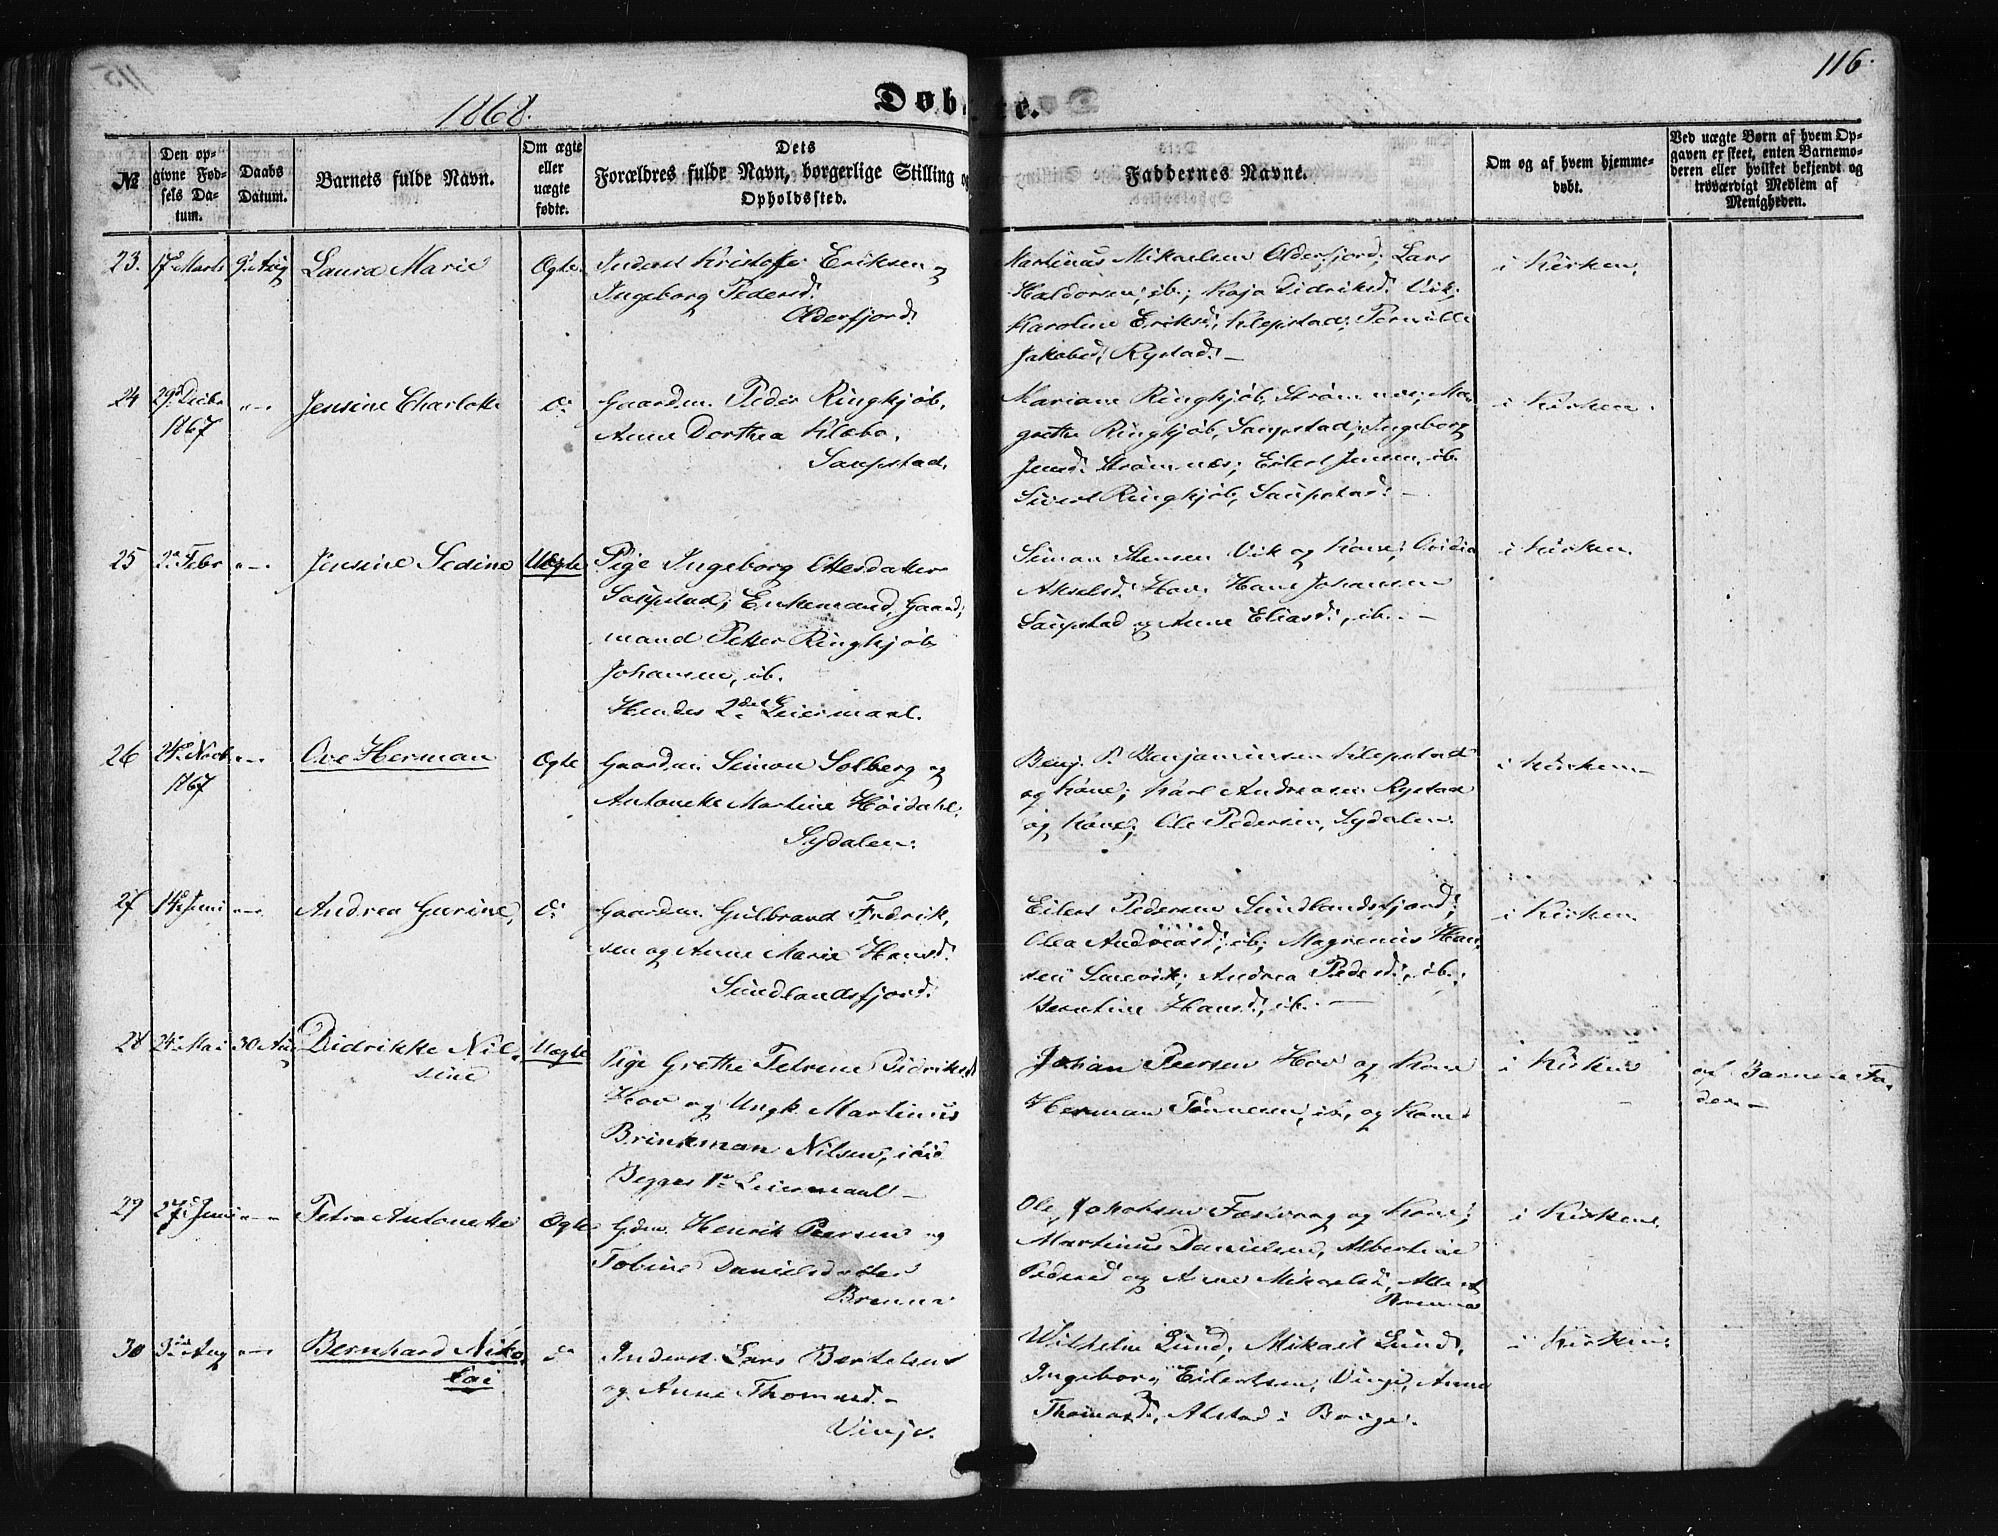 115
116.
1868.
Døbte.
№
Den op-
givne Fød-
sels Da-
tum.
Daabs
Datum.
Barnets fulde Navn.
Om ægte
eller
uægte
fødte.
Dets
Forældres fulde Navn, borgerlige Stilling og
Opholdssted.
Faddernes Navne.
Om og af hvem hjemme-
døbt.
Ved uægte Børn af hvem Op-
gaven er skeet, enten Barnemo-
deren eller hvilket bekjendt og
troværdigt Medlem af
Menigheden.
23. 17de Marts 9de Aug Laura Marie Ægte Inderst Kristoffer Eriksen og
Ingeborg Pedersd.
Olderfjord.
Martinus Mikaelsen Olderfjord; Lars
Haldorsen, ib.; Kaja Didriksd. Vik;
Karoline Eriksd. Klepstad; Pernille
Jakobsd. Rystad. —
i Kirken.
24 29de Decbr
1867
Jensine Charlotte do Gaardm. Peder Ringkjøb,
Anne Dorthea Klæbo,
Saupstad.
Mariane Ringkjøb, Strømnæs; Ma-
grethe Ringkjøb, Saupstad; Ingeborg
Jensd. Strømnæs; Eilert Jensen, ib.
Sivert Ringkjøb, Saupstad. —
i Kirken.
25 2den Febr Jensine Sedine Uægte Pige Ingeborg Ottesdatter
Saupstad; Enkemand, Gaard-
mand Petter Ringkjøb
Johansen, ib.
Hendes 2det Leiermaal.
Simon Stensen Vik og Kone;
Akselsd. Hov. Hans Johansen
Saupstad og Anne Eliasd., ib. —
i Kirken.
26 24de Novb
1867
Ove Herman Ægte Gaardm. Simon Solberg og
Antonette Martine Høidahl.
Sydalen.
Benj. P. Benjaminsen Klepstad
og Kone; Karl Andreasen Rystad
og Kone; Ole Pedersen, Sydalen.
i Kirken —
27 14de Juni Andrea Gurine, do Gaardm. Gulbrand Fredrik-
sen og Anne Marie Hansd.
Sundlandsfjord.
Eilert Pedersen Sundlandsfjord;
Olea Andreasd. ib; Magrenius Han-
sen Smevik; Andrea Pedersd., ib.;
Berntine Hansd., ib. —
i Kirken
28 24de Mai 30 Aug Didrikke Nil-
sine
Uægte Pige Grethe Petrine Didriksd
Hov og Ungk. Martinus
Brinkman Nilsen, ibid
Begges 1ste Leiermaal —
Johan Peersen Hov og Kone
Herman Tønnesen, ib, og Kone
i Kirken
af Barnets Fa-
der —
29 27de Juni Petra Antonette Ægte Gdm. Henrik Peersen og
Tobine Danielsdatter
Brenna
Ole Jakobsen Færivaag og Kone;
Martinus Danielsen, Albertine
Pedersd og Anne Mikaelsd, Alle af
Brenna
i Kirken.
30 3die Aug Bernhard Niko-
lai
do Inderst Lars Bertelsen
og Anne Thomasd. —
Vinje.
Wilhelm Lund, Mikael Lund,
Ingeborg Eilertsen, Vinje, Anne
Thomasd., Alstad i Borge.
i Kirken.